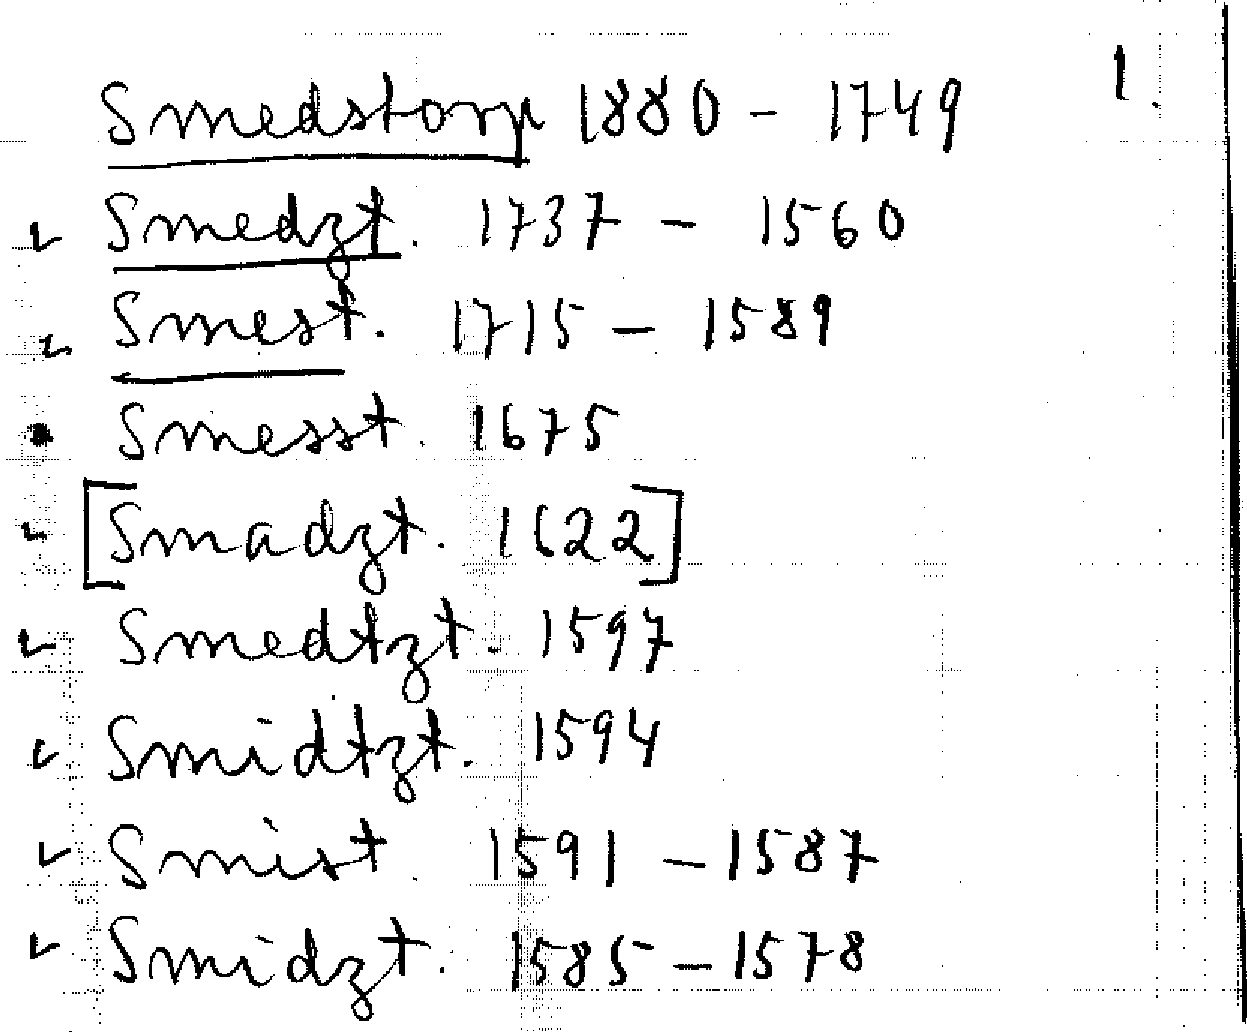 1.
Smedstorp 1880 - 1749
Smedzt. 1737 - 1560
Smest. 1715 - 1589
Smesst. 1675
[Smadzt. 1622]
Smedtzt. 1597
Smidtzt. 1594
Smist. 1591 - 1587
Smidzt. 1585 - 1578